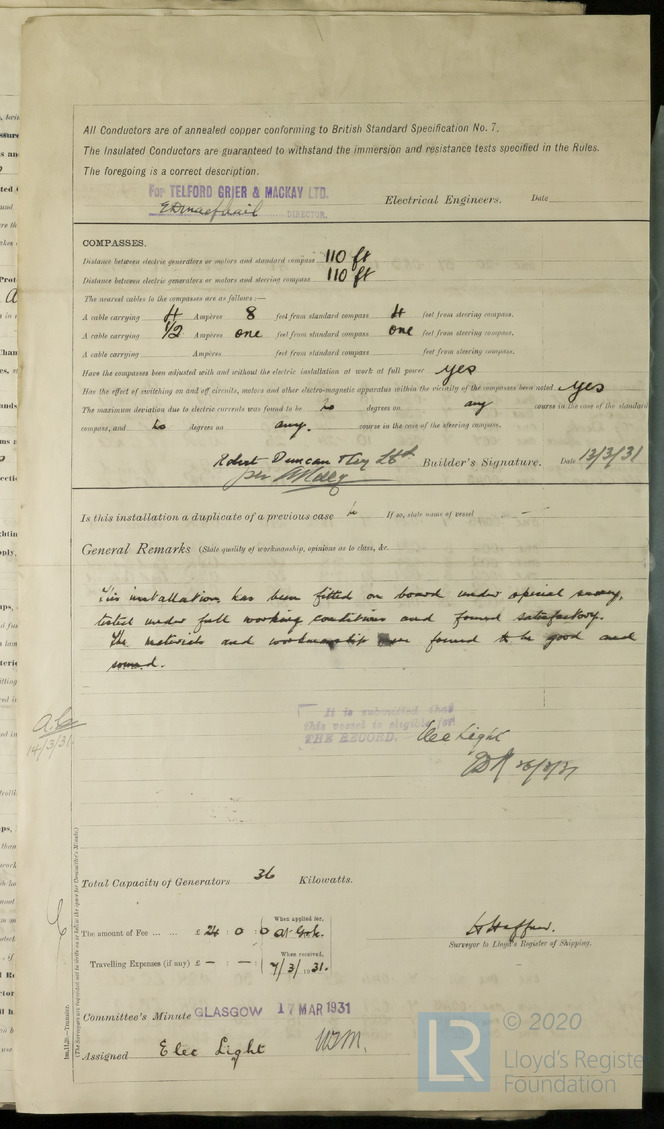 All Conductors are of annealed copper conforming to British Standard Specification No. 7.
The Insulated Conductors are guaranteed to withstand the immersion and resistance tests specified in the Rules.
The foregoing is a correct description.
For TELFORD GRIER & MACKAY LTD.
DIRECTOR. Electrical Engineers. Date
COMPASSES.
Distance between electric generators or motors and standard compass 110 ft
Distance between electric generators or motors and steering compass 110 ft
The nearest cables to the compasses are as follows:—
A cable carrying 4 Ampères 8 feet from standard compass 4 feet from steering compass.
A cable carrying 1/2 Ampères one feet from standard compass one feet from steering compass.
A cable carrying Ampères feet from standard compass feet from steering compass.
Have the compasses been adjusted with and without the electric installation at work at full power yes
Has the effect of switching on and off circuits, motors and other electro-magnetic apparatus within the vicinity of the compasses been noted yes
The maximum deviation due to electric currents was found to be no degrees on any course in the case of the standard
compass, and no degrees on any. course in the case of the steering compass.
Robert Duncan & Coy Ltd Builder's Signature. Date 13/3/31
per
Is this installation a duplicate of a previous case If so, state name of vessel —
General Remarks (State quality of workmanship, opinions as to class, &c.
This installation has been fitted on board under special survey,
tested under full working conditions and found satisfactory.
The materials and workmanship were found to be good and
sound.
It is submitted that
this vessel is eligible for
THE RECORD. Elec Light
14/3/31
Total Capacity of Generators 36 Kilowatts.
The amount of Fee ... ... £ 24 : 0 : 0 When applied for,
Travelling Expenses (if any) £ — : — : When received,
7/3/1931.
Surveyor to Lloyd's Register of Shipping.
Committee's Minute GLASGOW 17 MAR 1931
Assigned Elec Light
1m,11,29.—Transfer.
(The Surveyors are requested not to write on or below the space for Committee's Minute.)
LR © 2020
Lloyd's Register
Foundation